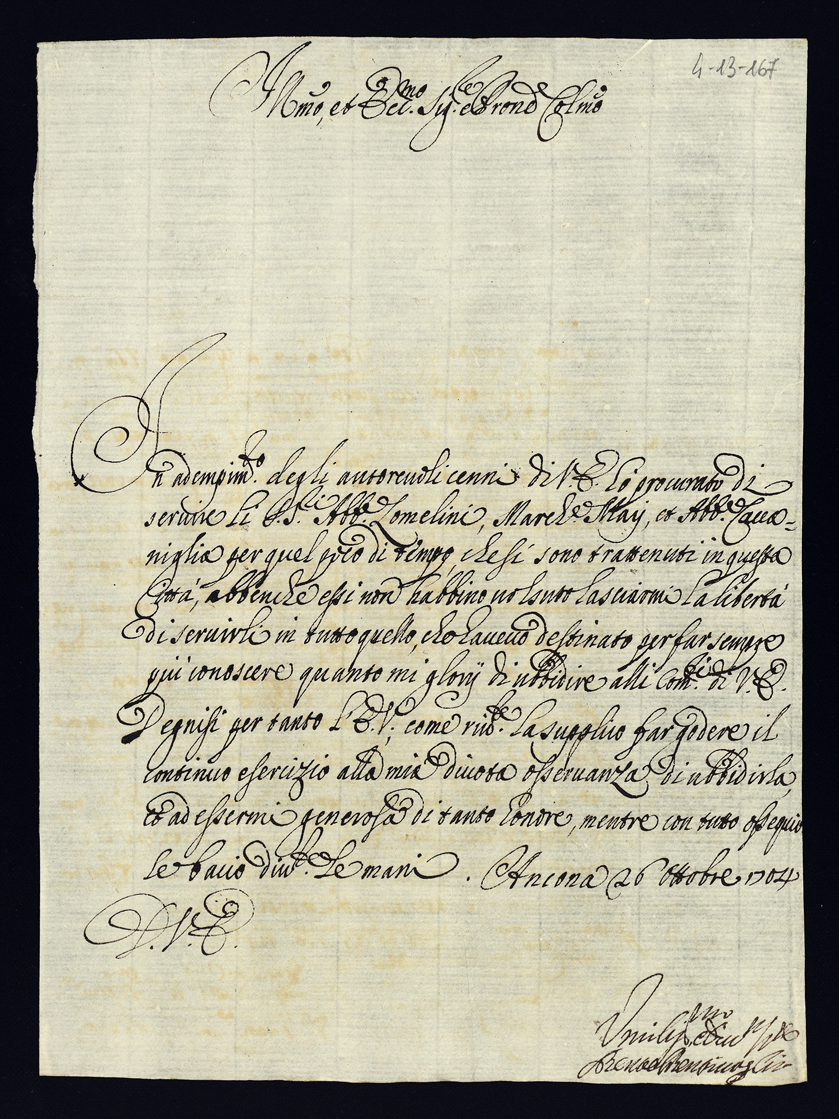 4-13-167
Illmo, et Ecc.mo Sig.re e Pron Colmo
In adempim.to degli autorevoli cenni di V.E. hò procurato di
servire li SS.ri Abb.e Lomelini, March.e Maij, et Abb.e Cacca=
niglia per quel pòco di tempo, che si sono trattenuti in questa
Città, abbenche essi non habbino voluto lasciarmi la libertà
di servirli in tutto quello, che havevo destinato per far sempre
più conoscere quanto mi glorij di ubbidire alli Com.di di V.E.
Degnisi per tanto l'E.V., come riv.te la supplico far godere il
continuo esercizio alla mia divota osservanza di ubbidirla,
et ad essermi generosa di tanto honore, mentre con tutto ossequio
le bacio div.te le mani. Ancona 26 Ottobre 1704
D.V.E.
Umiliss.mo e Div.
Bentivoglio